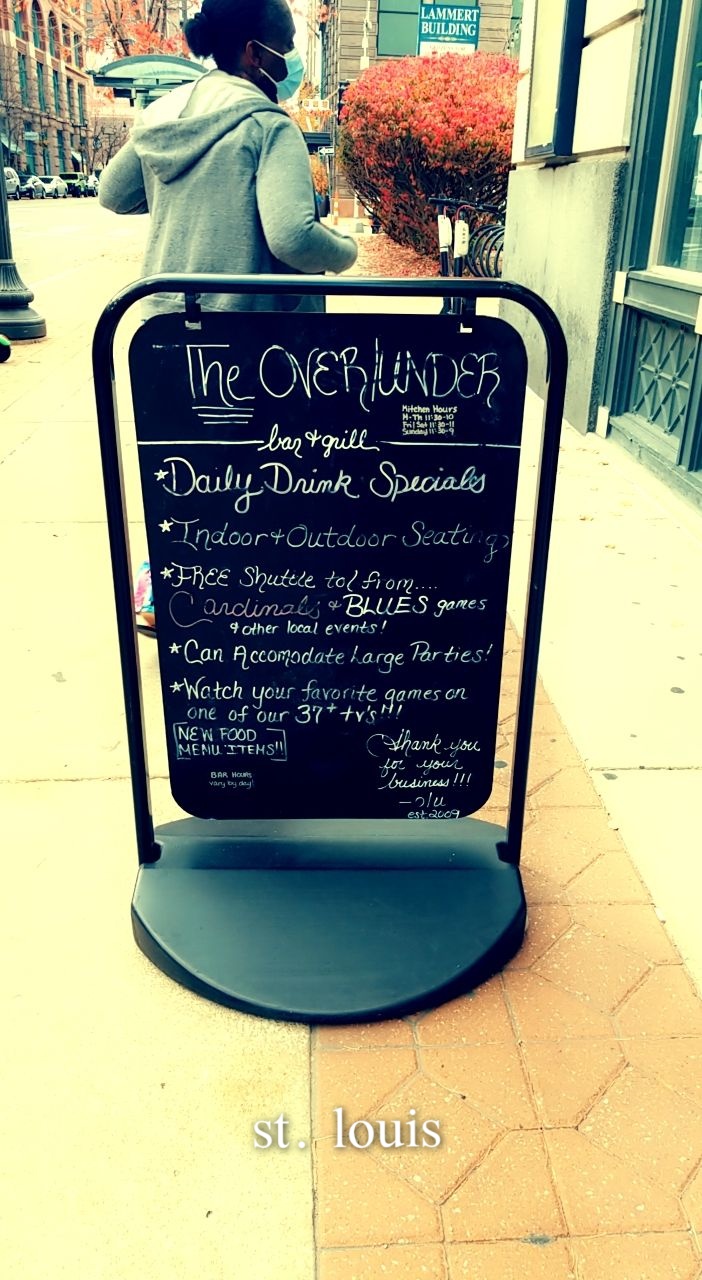 LAMMERT
BUILDING
The OVER/UNDER
Kitchen Hours
M-Th 11:30-10
Fri/Sat 11:30-11
Sunday 11:30-9
bar & grill
*Daily Drink Specials
*Indoor & Outdoor Seating
*FREE Shuttle to/from....
Cardinals & BLUES games
& other local events!
*Can Accomodate Large Parties!
*Watch your favorite games on
one of our 37+ tv's!!!
NEW FOOD
MENU ITEMS!!
BAR HOURS
vary by day!
Thank you
for your
business!!!
-o/u
est. 2009
st. louis